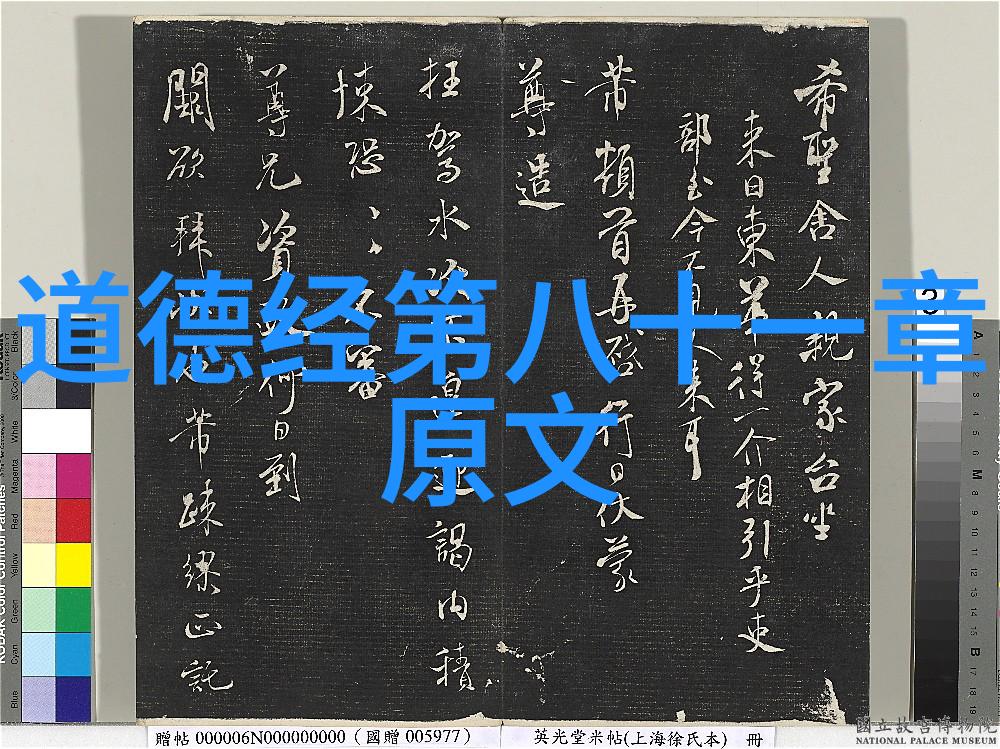 道德经第八十一章
原文
希聖舍人親家台坐
来日東華得一介相引乎吏
部玉今不見人来耳
芾頓首再啓行日伏蒙
尊造
枉駕水
謁内積
悚恐
審
尊兄資
何日到
闕欲拜
芾疎繆正託
贈帖 000006N000000000 (國贈 005977)
英光堂米帖(上海徐氏本) 冊
國立故宮博物院
NATIONAL PALACE MUSEUM
KODAK Color Control Patches
Blue
Cyan
Green
Yellow
Red
Magenta
White
3/Color
Black
A
1
2
3
4
5
6
M
8
9
10
11
12
13
14
15
B
17
18
19